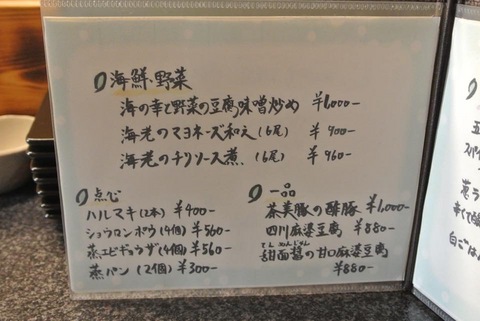 海鮮・野菜
海の幸と野菜の豆腐味噌炒め ¥1,000-
海老のマヨネーズ和え(6尾) ¥900-
海老のチリソース煮(6尾) ¥960-
点心
ハルマキ(2本) ¥400-
ショウロンポウ(4個) ¥560-
蒸エビギョウザ(4個) ¥560-
蒸パン(2個) ¥300-
一品
茶美豚の酢豚 ¥1,000-
四川麻婆豆腐 ¥880-
てんめんじゃん
甜面醤の甘口麻婆豆腐
¥880-
五
スパイ
葱ラ
辛くて
白ごはん